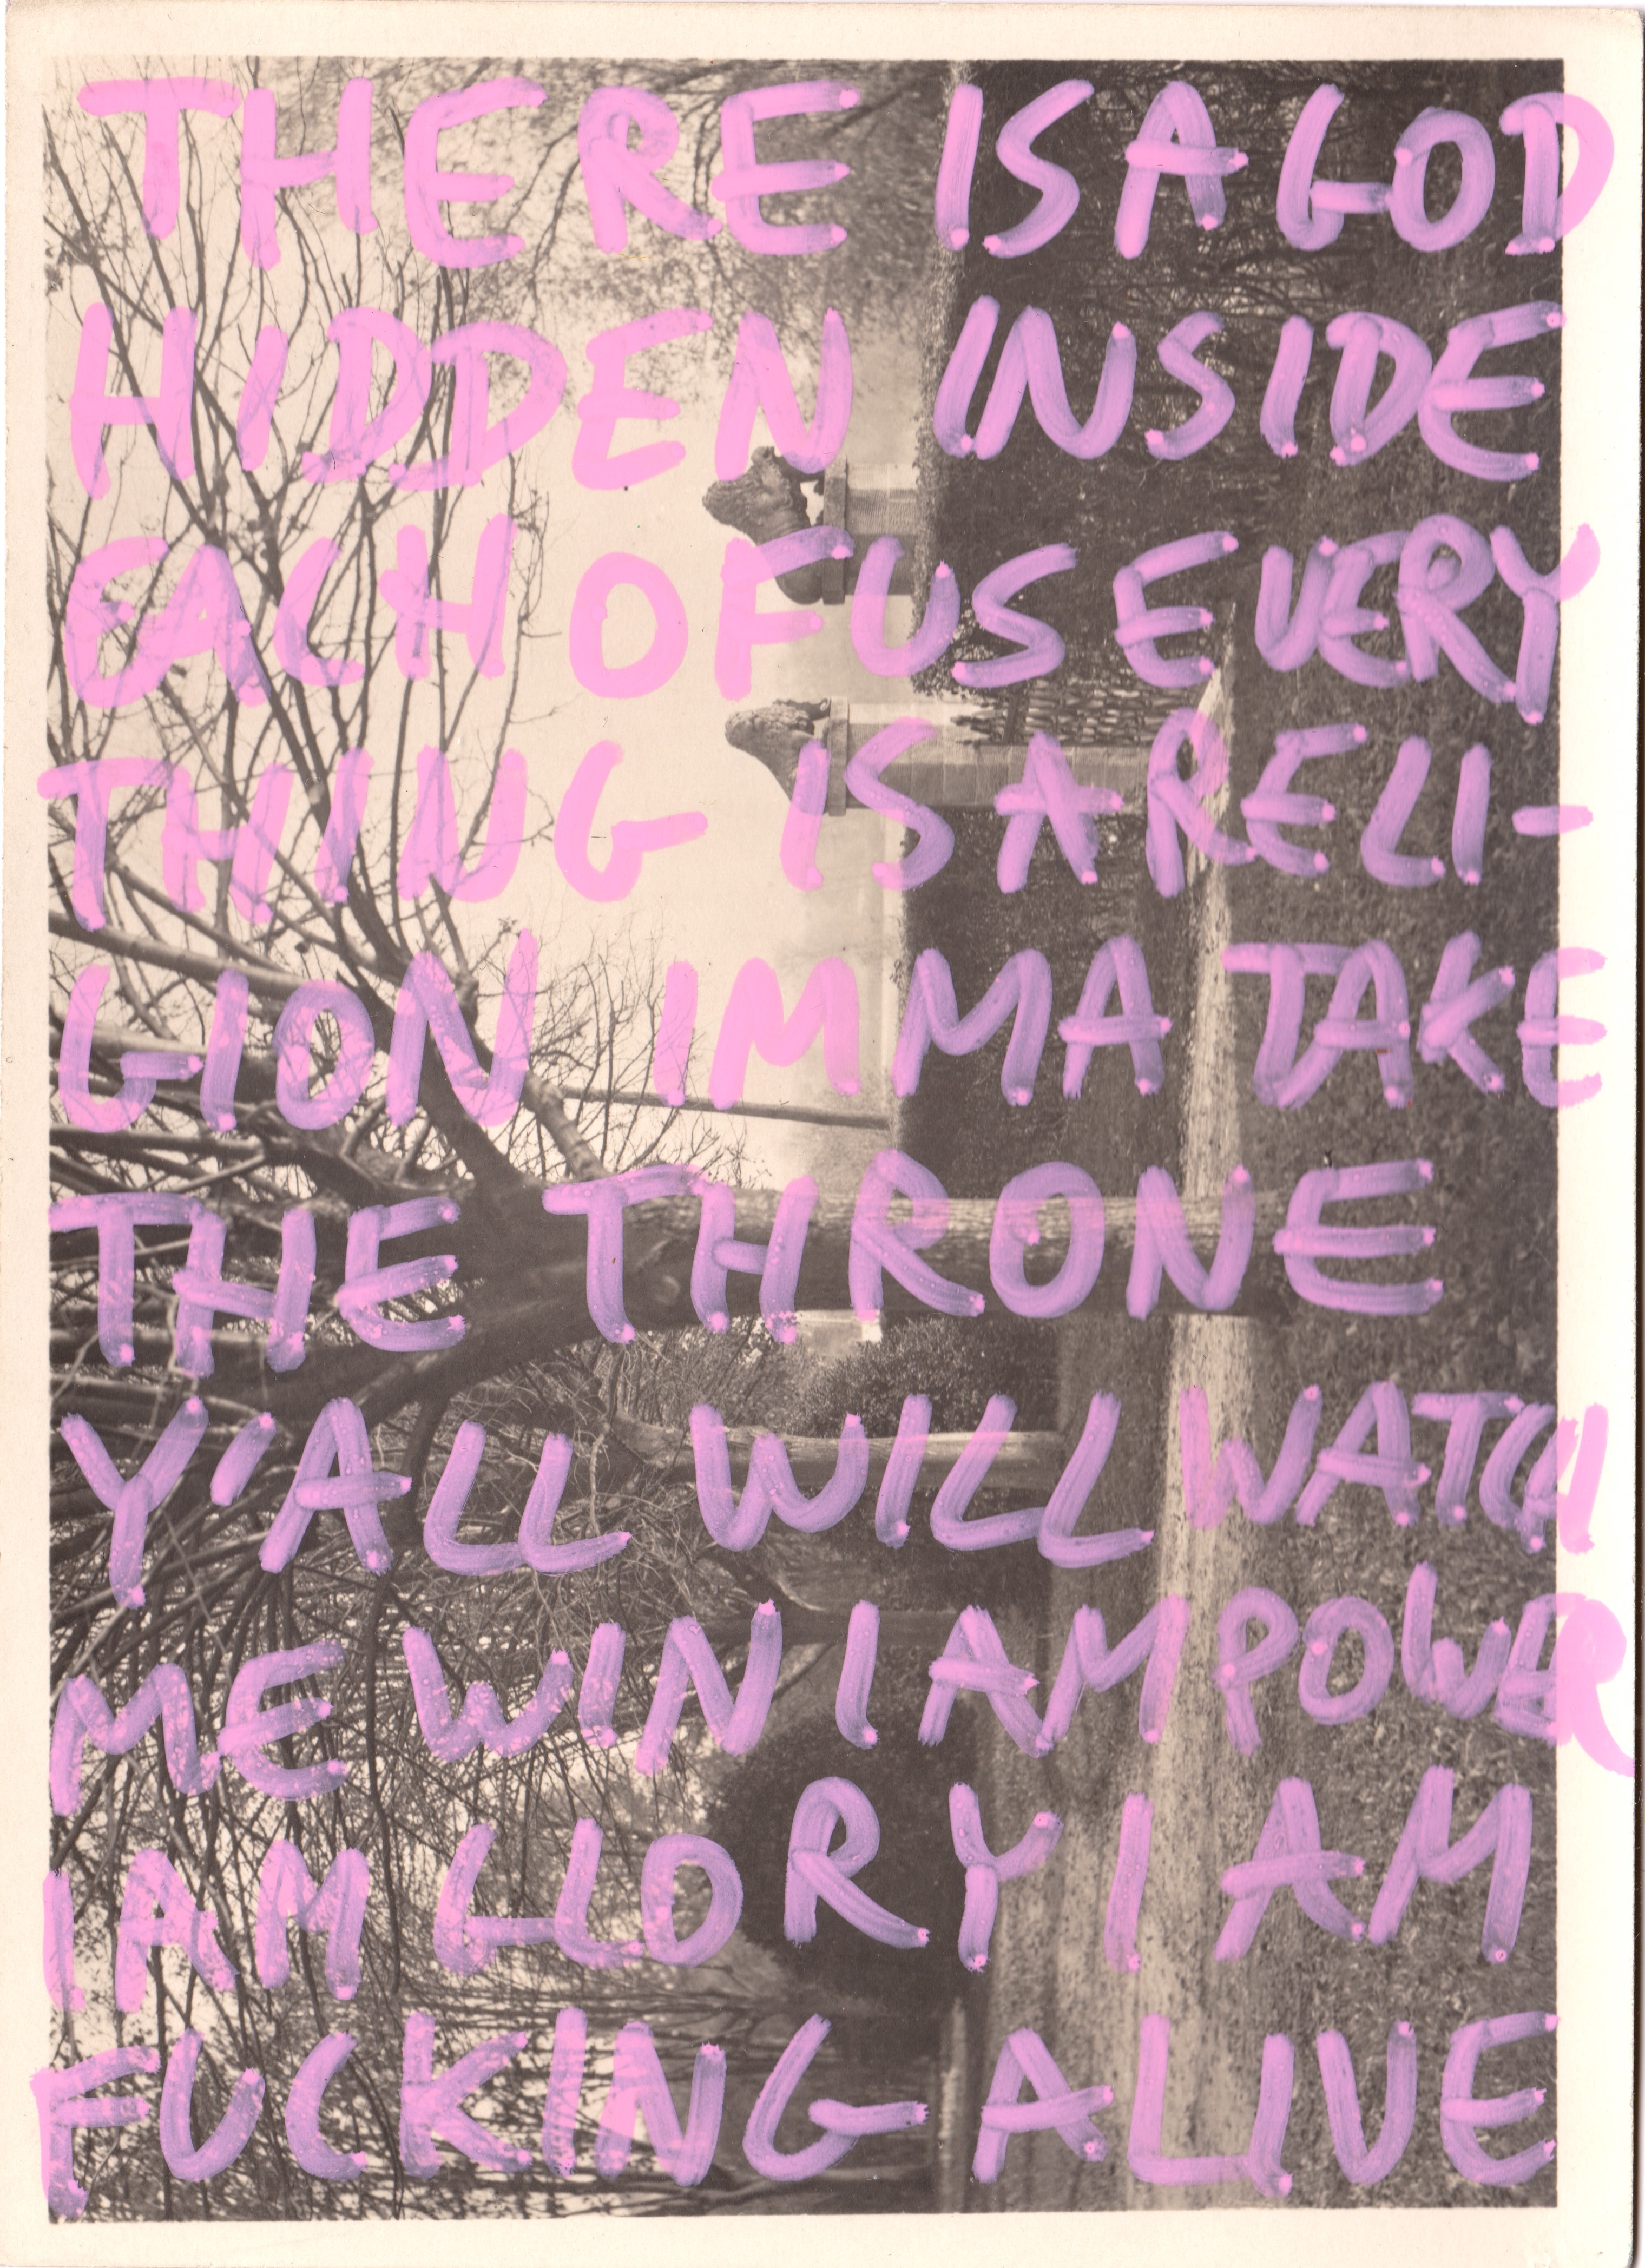 THERE IS A GOD
HIDDEN INSIDE
EACH OF US EVERY
THING IS A RELI-
GION IMMA TAKE
THE THRONE
Y'ALL WILL WATCH
ME WIN I AM POWER
I AM GLORY I AM
FUCKING ALIVE